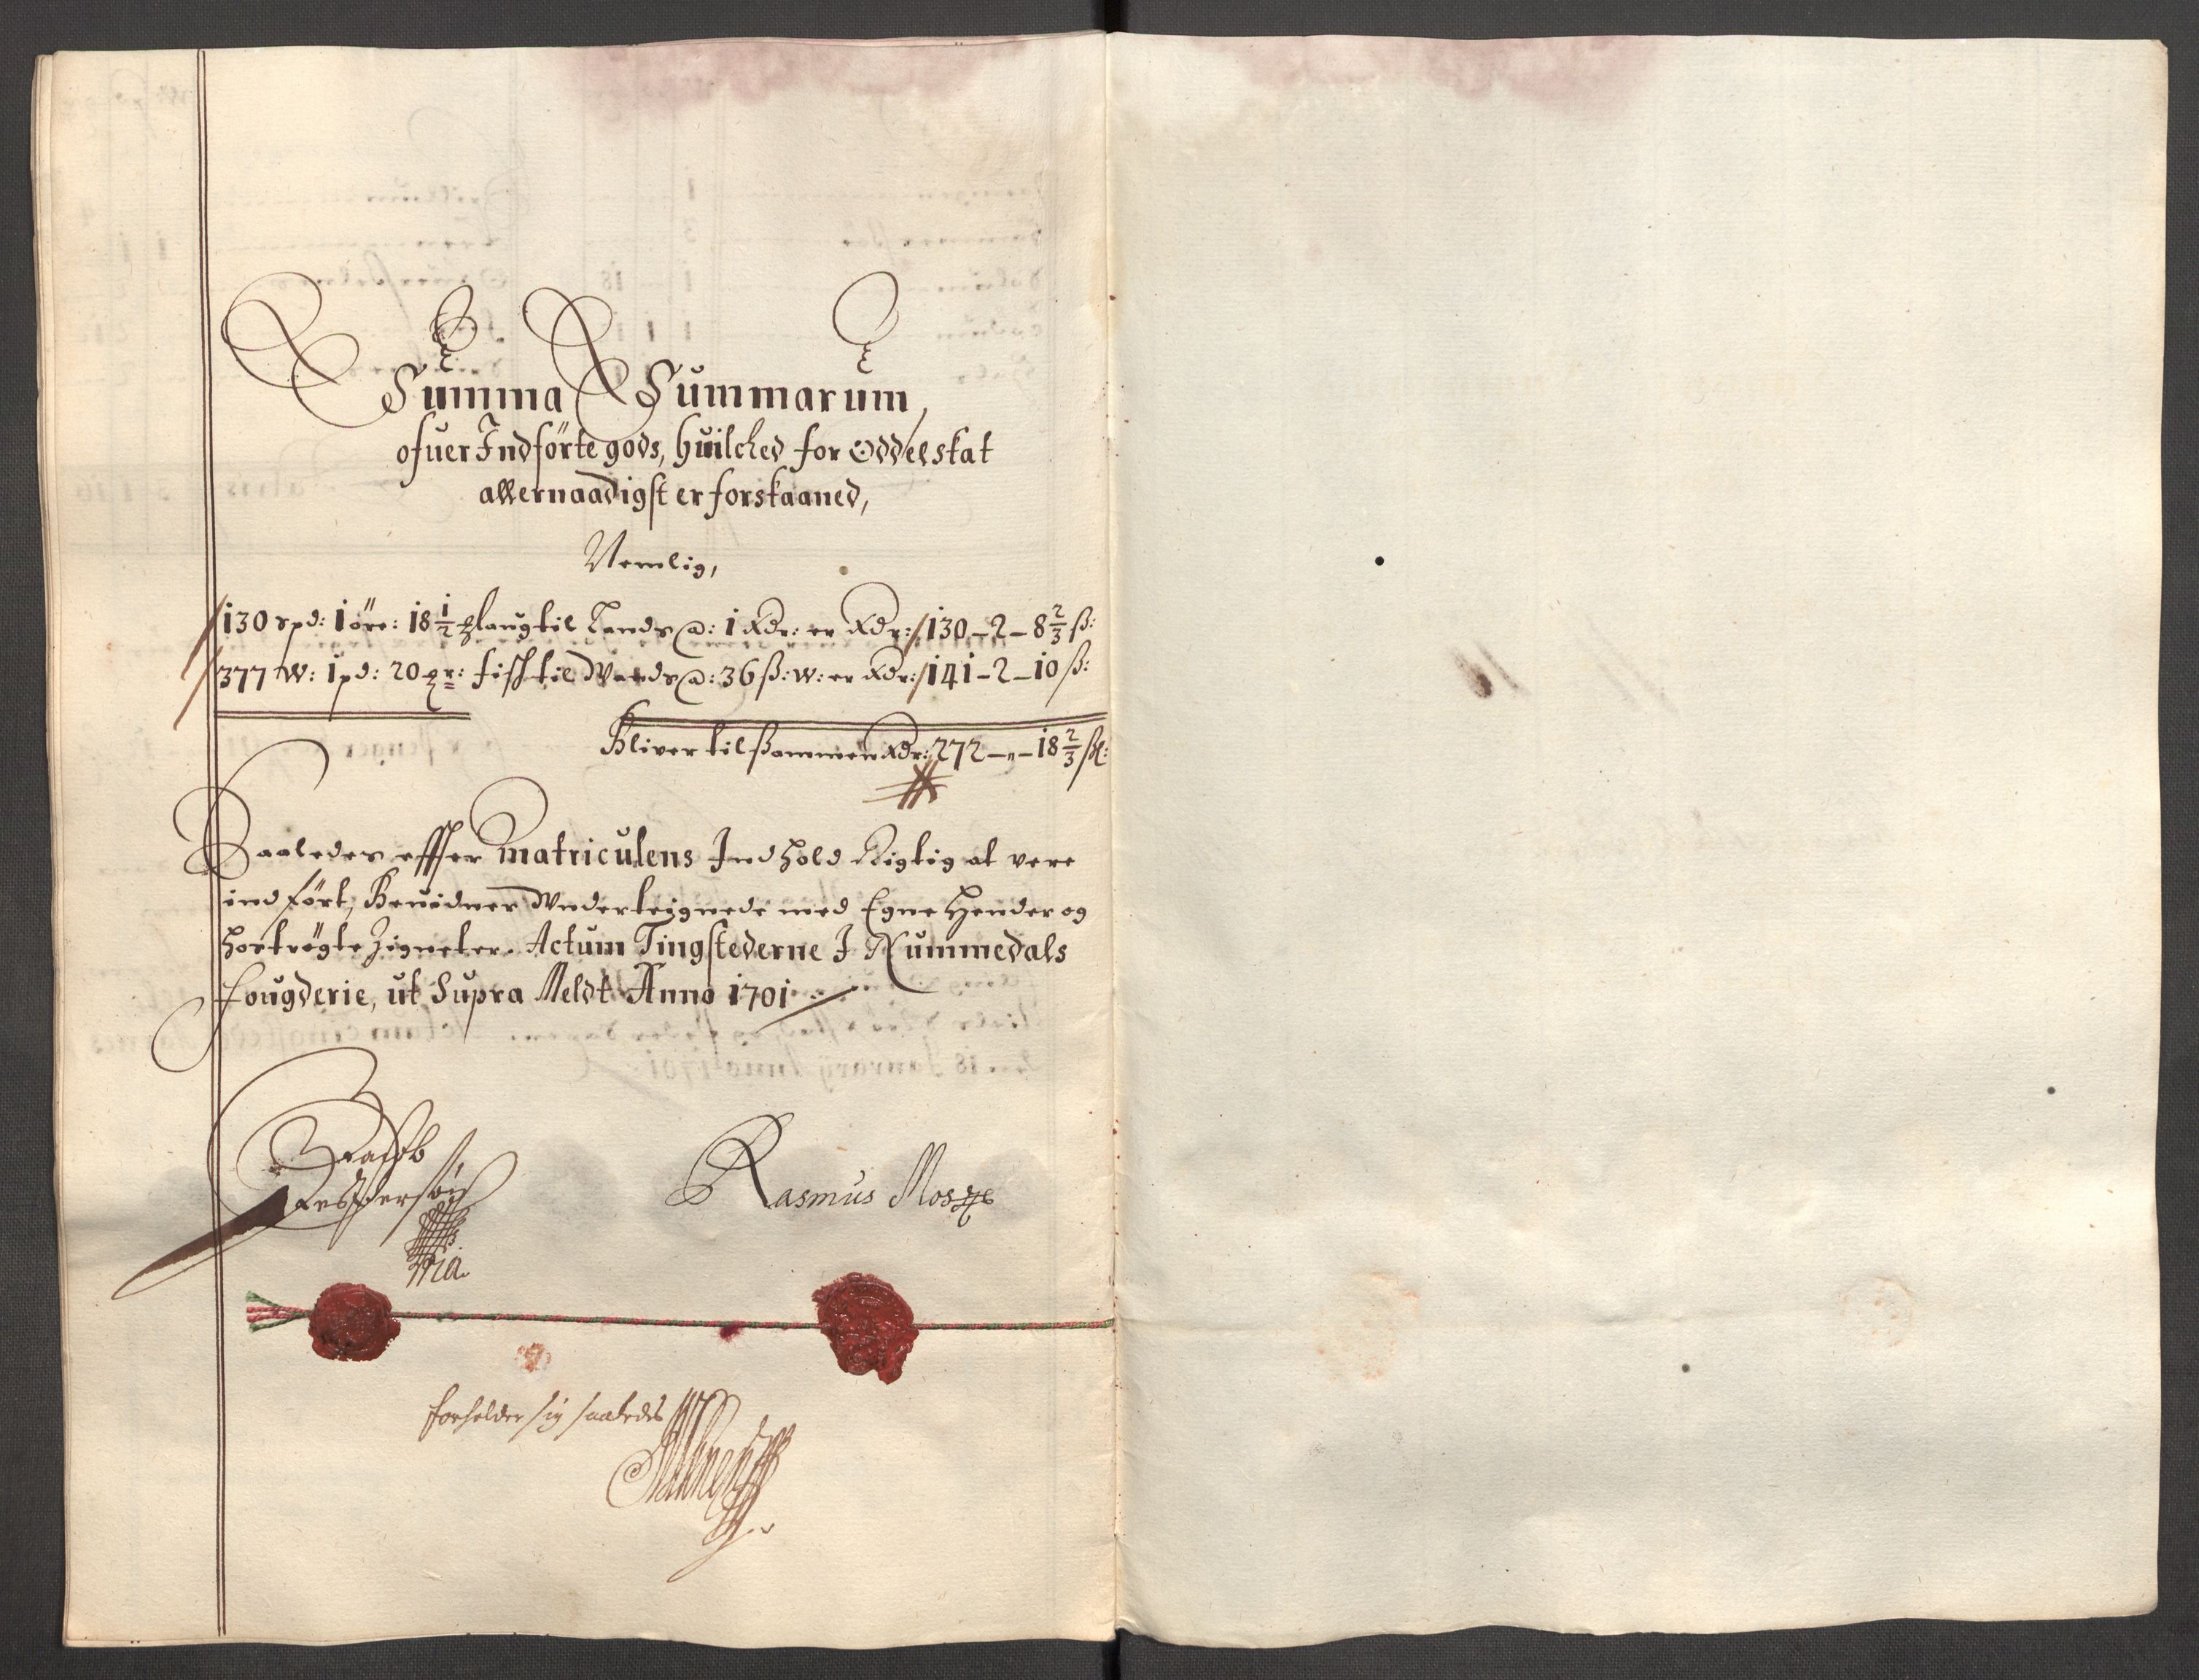 Summa Summarum,
ofuer Indförte gods, huilched for Oddelskat
allernaadigst er forskaaned,
Nemlig,
130 spd: 1 öre: 18 1/2 laug til Lands @: 1 Rdr: er Rdr: 130 – 2 – 8 2/3 ß:
377 W: 1 pd: 20 fisk til Wands @: 36 ß: W: er Rdr: 141 – 2 – 10 ß:
Bliver tilsammen Rdr: 272 – „ – 18 2/3 ßl:
Saaledes effter Matriculens Indhold Rigtig at vere
indført, Beuidner Underteignede med Egne Hender og
hostrøgte Zigneter. Actum Tingstederne I Nummedals
fougderie, ut Supra Meldt Anno 1701
Jacob
Jespersøn
mia.
Rasmus Mosze
forholder sig saaledes